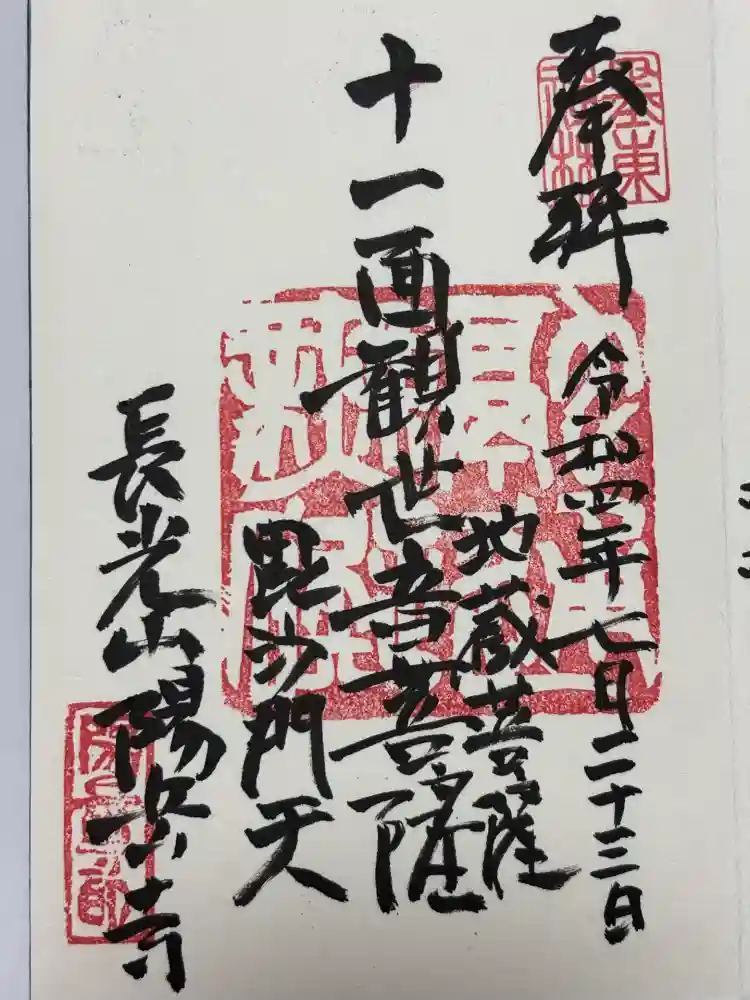 奉拝
令和四年七月二十三日
地蔵菩薩
十一面観世音菩薩
毘沙門天
長光山陽岳寺